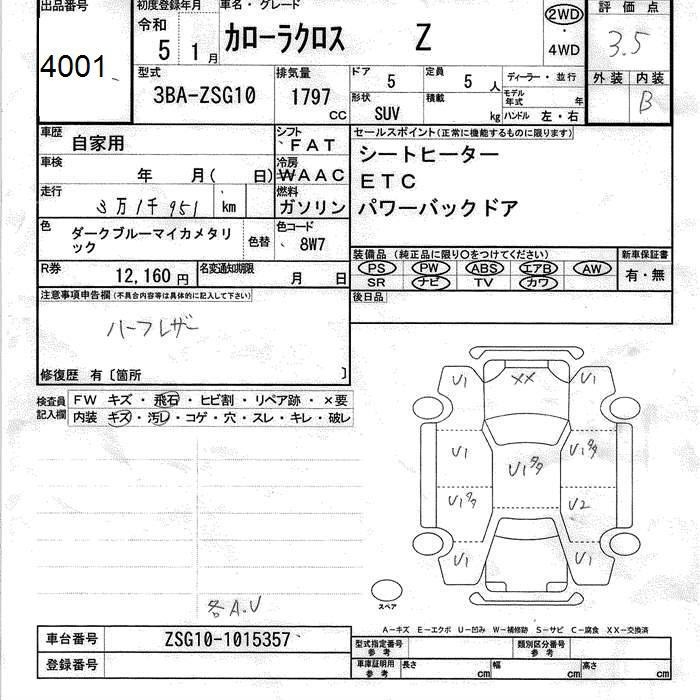 出品番号 初度登録年月 車名・グレード 評価点
4001 令和 5 1月 カローラクロス Z 2WD・4WD 3.5
外装 内装
B
型式 3BA-ZSG10 排気量 1797 CC
ドア 5 定員 5 人 ディーラー・並行
形状 SUV 積載 kg モデル年式 年
ハンドル 左・右
車歴 自家用 シフト FAT
セールスポイント(正常に機能するものに限ります)
車検 年 月( 日) 冷房 WAAC
シートヒーター
走行 3万1千951 km 燃料 ガソリン
ETC
パワーバックドア
色 ダークブルーマイカメタリック 色替 色コード 8W7
装備品(純正品に限り○をつけてください) 新車保証書
R券 12,160円 名変通知期限 月 日
PS PW ABS エアB AW 有・無
SR ナビ TV カワ
注意事項申告欄(不具合内容等は具体的に記入して下さい)
後日品
ハーフレザー
修復歴 有〔箇所 〕
検査員記入欄
FW キズ・飛石・ヒビ割・リペア跡・×要
内装 キズ・汚し・コゲ・穴・スレ・キレ・破レ
U1 XX U1
U1 U1タタ U1タタ
U1タタ U2
U1 U1
スペア
各A.U
A-キズ E-エクボ U-凹み W-補修跡 S-サビ C-腐食 XX-交換済
車台番号 ZSG10-1015357
型式指定番号 参考 類別区分番号 参考
登録番号
車庫証明用 参考 長さ cm 幅 cm 高さ cm